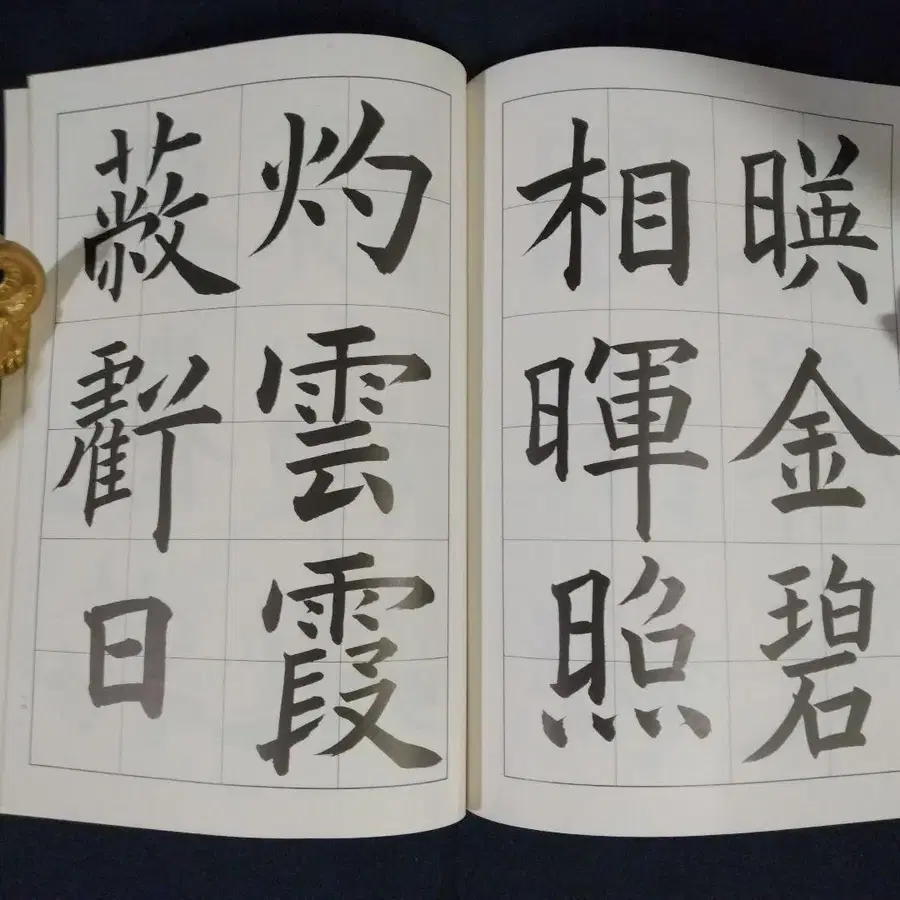 暎金碧
相暉照
灼雲霞
蔽虧日